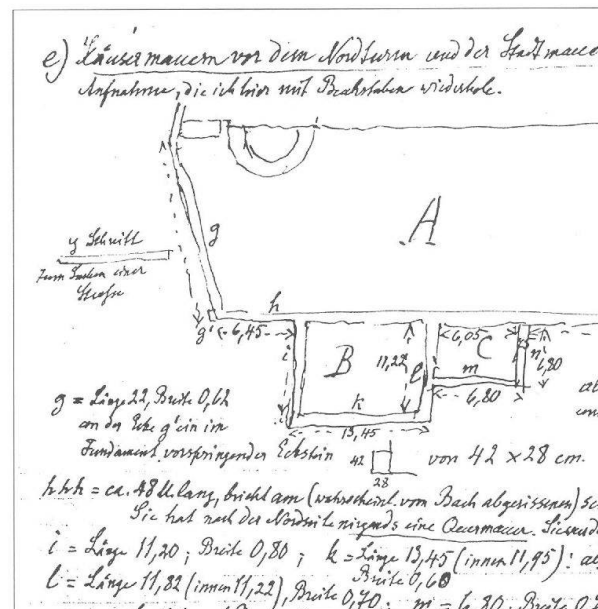 e) Häusermauern vor dem Nordturm und der Stadtmauer
Aufnahme, die ich hier mit Buchstaben wiederhole.
g
A
y Schnitt
zum Suchen einer
Strasse
h
g' 6,45
i
B
11,22
l
k
13,45
6,05
C
m
6,80
n
6,80
g = Länge 22, Breite 0,62
an der Ecke g' ein im
Fundament vorspringender Eckstein
42
28
von 42 × 28 cm.
hhh = ca. 48 M lang, bricht am (wahrscheinl. vom Bach abgerissenen)
Sie hat nach der Nordseite nirgends eine Quermauer.
i = Länge 11,20; Breite 0,80; k = Länge 13,45 (innen 11,95)
Breite 0,60
l = Länge 11,82 (innen 11,22), Breite 0,70; m = 6,80, Breite